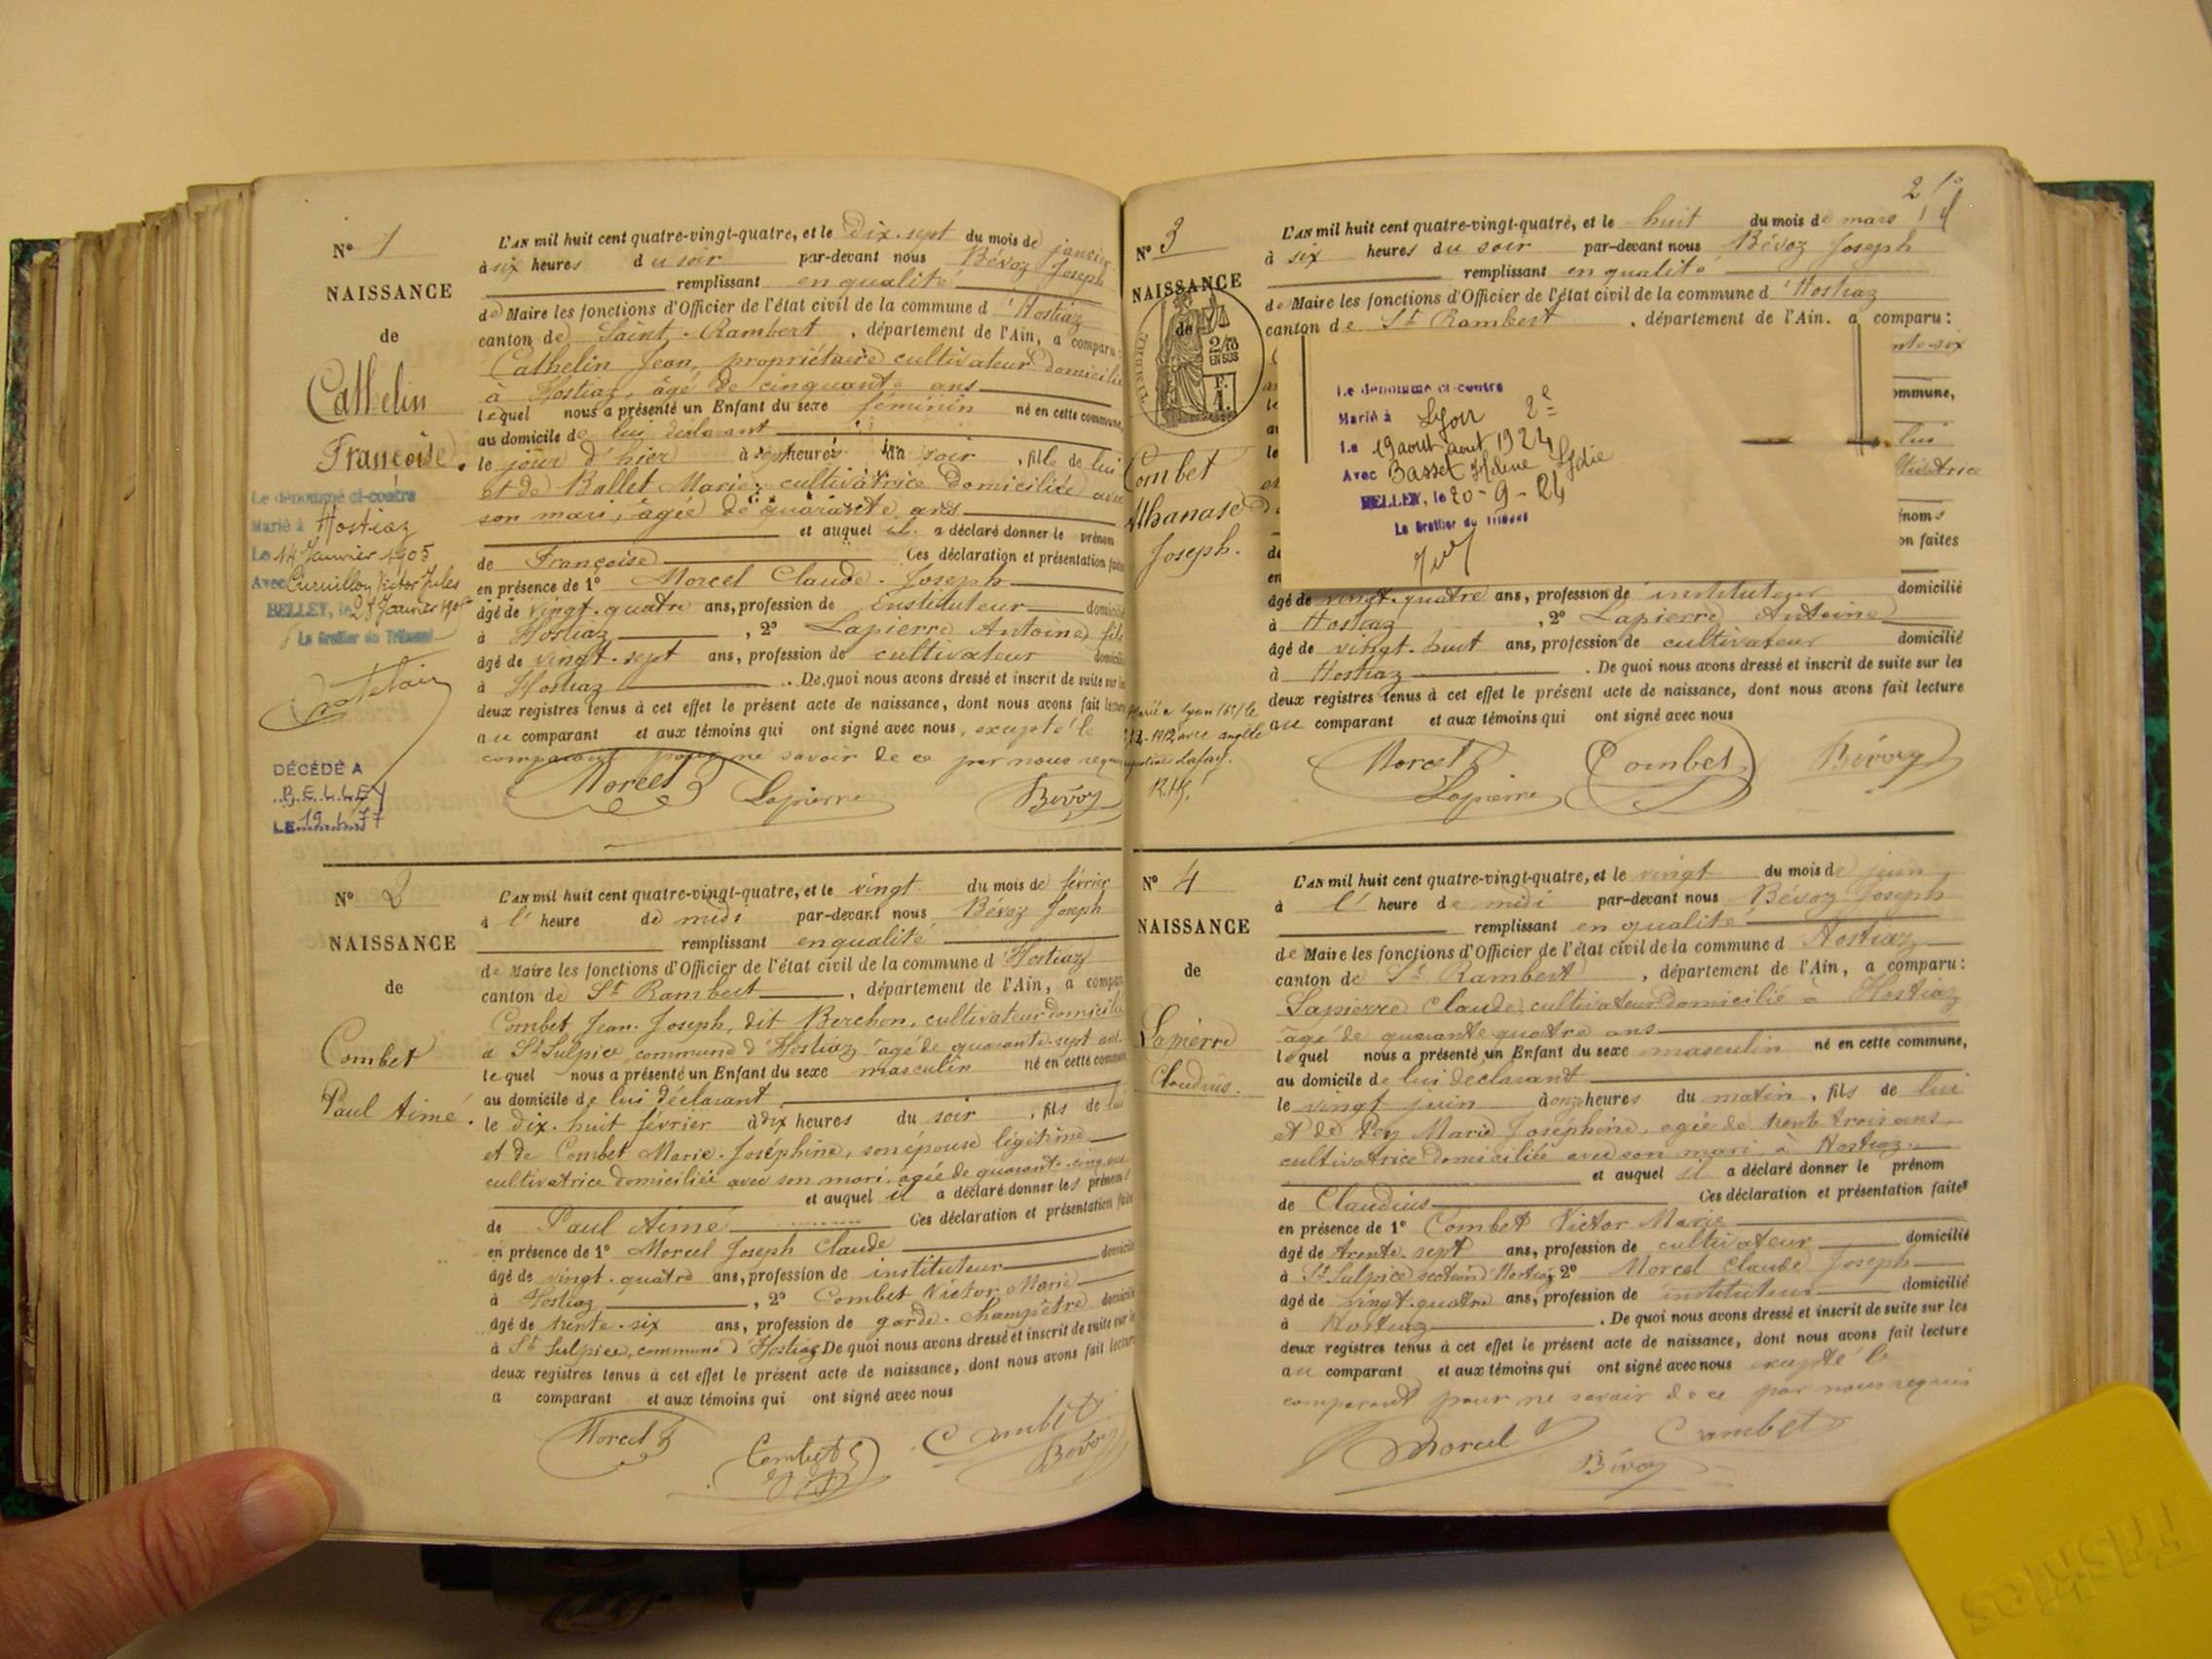 N° 1
NAISSANCE
de
Cathelin
Françoise.
Le dénommé ci-contre
Marié à Hostiaz
Le 14 Janvier 1905
Avec Victor Jules
BELLEY, le 25 Janvier
Le Greffier du Tribunal
DÉCÉDÉ A
BELLEY
LE 19
L'AN mil huit cent quatre-vingt-quatre, et le Dix-sept du mois de janvier
à six heures du soir par-devant nous Bévoz Joseph
remplissant en qualité
de Maire les fonctions d'Officier de l'état civil de la commune d'Hostiaz
canton de Saint-Rambert, département de l'Ain, a comparu:
Cathelin Jean, propriétaire cultivateur domicilié
à Hostiaz, âgé de cinquante ans
lequel nous a présenté un Enfant du sexe féminin né en cette commune,
au domicile de lui déclarant
le jour d'hier à sept heures du soir, fille de lui
et de Ballet Marie, cultivatrice domiciliée avec
son mari, âgée de quarante ans
et auquel il a déclaré donner le prénom
de Françoise Ces déclaration et présentation faites
en présence de 1° Morcel Claude-Joseph
âgé de vingt-quatre ans, profession de instituteur domicilié
à Hostiaz, 2° Lapierre Antoine fils
âgé de vingt-sept ans, profession de cultivateur domicilié
à Hostiaz. De quoi nous avons dressé et inscrit de suite sur les
deux registres tenus à cet effet le présent acte de naissance, dont nous avons fait lecture
au comparant et aux témoins qui ont signé avec nous, excepté le
comparant pour ne savoir de ce par nous requis
Morcel Lapierre Bévoz
N° 2
NAISSANCE
de
Combet
Paul Aimé.
L'AN mil huit cent quatre-vingt-quatre, et le vingt du mois de février
à l'heure de midi par-devant nous Bévoz Joseph
remplissant en qualité
de Maire les fonctions d'Officier de l'état civil de la commune d'Hostiaz
canton de St Rambert, département de l'Ain, a comparu
Combet Jean-Joseph, dit Berchon, cultivateur domicilié
à St Sulpice, commune d'Hostiaz âgé de quarante-sept ans
lequel nous a présenté un Enfant du sexe masculin né en cette commune
au domicile de lui déclarant
le dix-huit février à dix heures du soir, fils de lui
et de Combet Marie-Joséphine, son épouse légitime
cultivatrice domiciliée avec son mari, âgée de quarante-cinq ans
et auquel il a déclaré donner les prénoms
de Paul Aimé Ces déclaration et présentation faites
en présence de 1° Morcel Joseph Claude
âgé de vingt-quatre ans, profession de instituteur domicilié
à Hostiaz, 2° Combet Victor Marie
âgé de trente-six ans, profession de garde-champêtre domicilié
à St Sulpice, commune d'Hostiaz De quoi nous avons dressé et inscrit de suite sur les
deux registres tenus à cet effet le présent acte de naissance, dont nous avons fait lecture
a comparant et aux témoins qui ont signé avec nous
Morcel Combet Combet Bévoz
2
N° 3
NAISSANCE
de
2/10
EN SUS
Combet
Athanase
Joseph.
L'AN mil huit cent quatre-vingt-quatre, et le huit du mois de mars
à six heures du soir par-devant nous Bévoz Joseph
remplissant en qualité
de Maire les fonctions d'Officier de l'état civil de la commune d'Hostiaz
canton de St Rambert, département de l'Ain. a comparu:
Le dénommé ci-contre
Marié à Lyon 2e
Le 19 aout aout 1924
Avec Basset Hélène Lydie
BELLEY, le 20-9-24
Le Greffier du Tribunal
âgé de vingt-quatre ans, profession de instituteur domicilié
à Hostiaz, 2° Lapierre Antoine
âgé de vingt-huit ans, profession de cultivateur domicilié
à Hostiaz. De quoi nous avons dressé et inscrit de suite sur les
deux registres tenus à cet effet le présent acte de naissance, dont nous avons fait lecture
au comparant et aux témoins qui ont signé avec nous
Morcel Lapierre Combet Bévoz
N° 4
NAISSANCE
de
Lapierre
Claudius.
L'AN mil huit cent quatre-vingt-quatre, et le vingt du mois de juin
à l'heure de midi par-devant nous Bévoz Joseph
remplissant en qualité
de Maire les fonctions d'Officier de l'état civil de la commune d Hostiaz
canton de St Rambert, département de l'Ain, a comparu:
Lapierre Claude, cultivateur domicilié à Hostiaz
âgé de quarante quatre ans
lequel nous a présenté un Enfant du sexe masculin né en cette commune,
au domicile de lui déclarant
le vingt juin à onze heures du matin, fils de lui
et de Pey Marie Joséphine, agée de trente trois ans,
cultivatrice domiciliée avec son mari à Hostiaz.
et auquel il a déclaré donner le prénom
de Claudius Ces déclaration et présentation faites
en présence de 1° Combet Victor Marie
âgé de trente-sept ans, profession de cultivateur domicilié
à St Sulpice section d'Hostiaz 2° Morcel Claude Joseph
âgé de vingt-quatre ans, profession de instituteur domicilié
à Hostiaz. De quoi nous avons dressé et inscrit de suite sur les
deux registres tenus à cet effet le présent acte de naissance, dont nous avons fait lecture
au comparant et aux témoins qui ont signé avec nous excepté le
comparant pour ne savoir de ce par nous requis
Morcel Bévoz Combet
Friskies